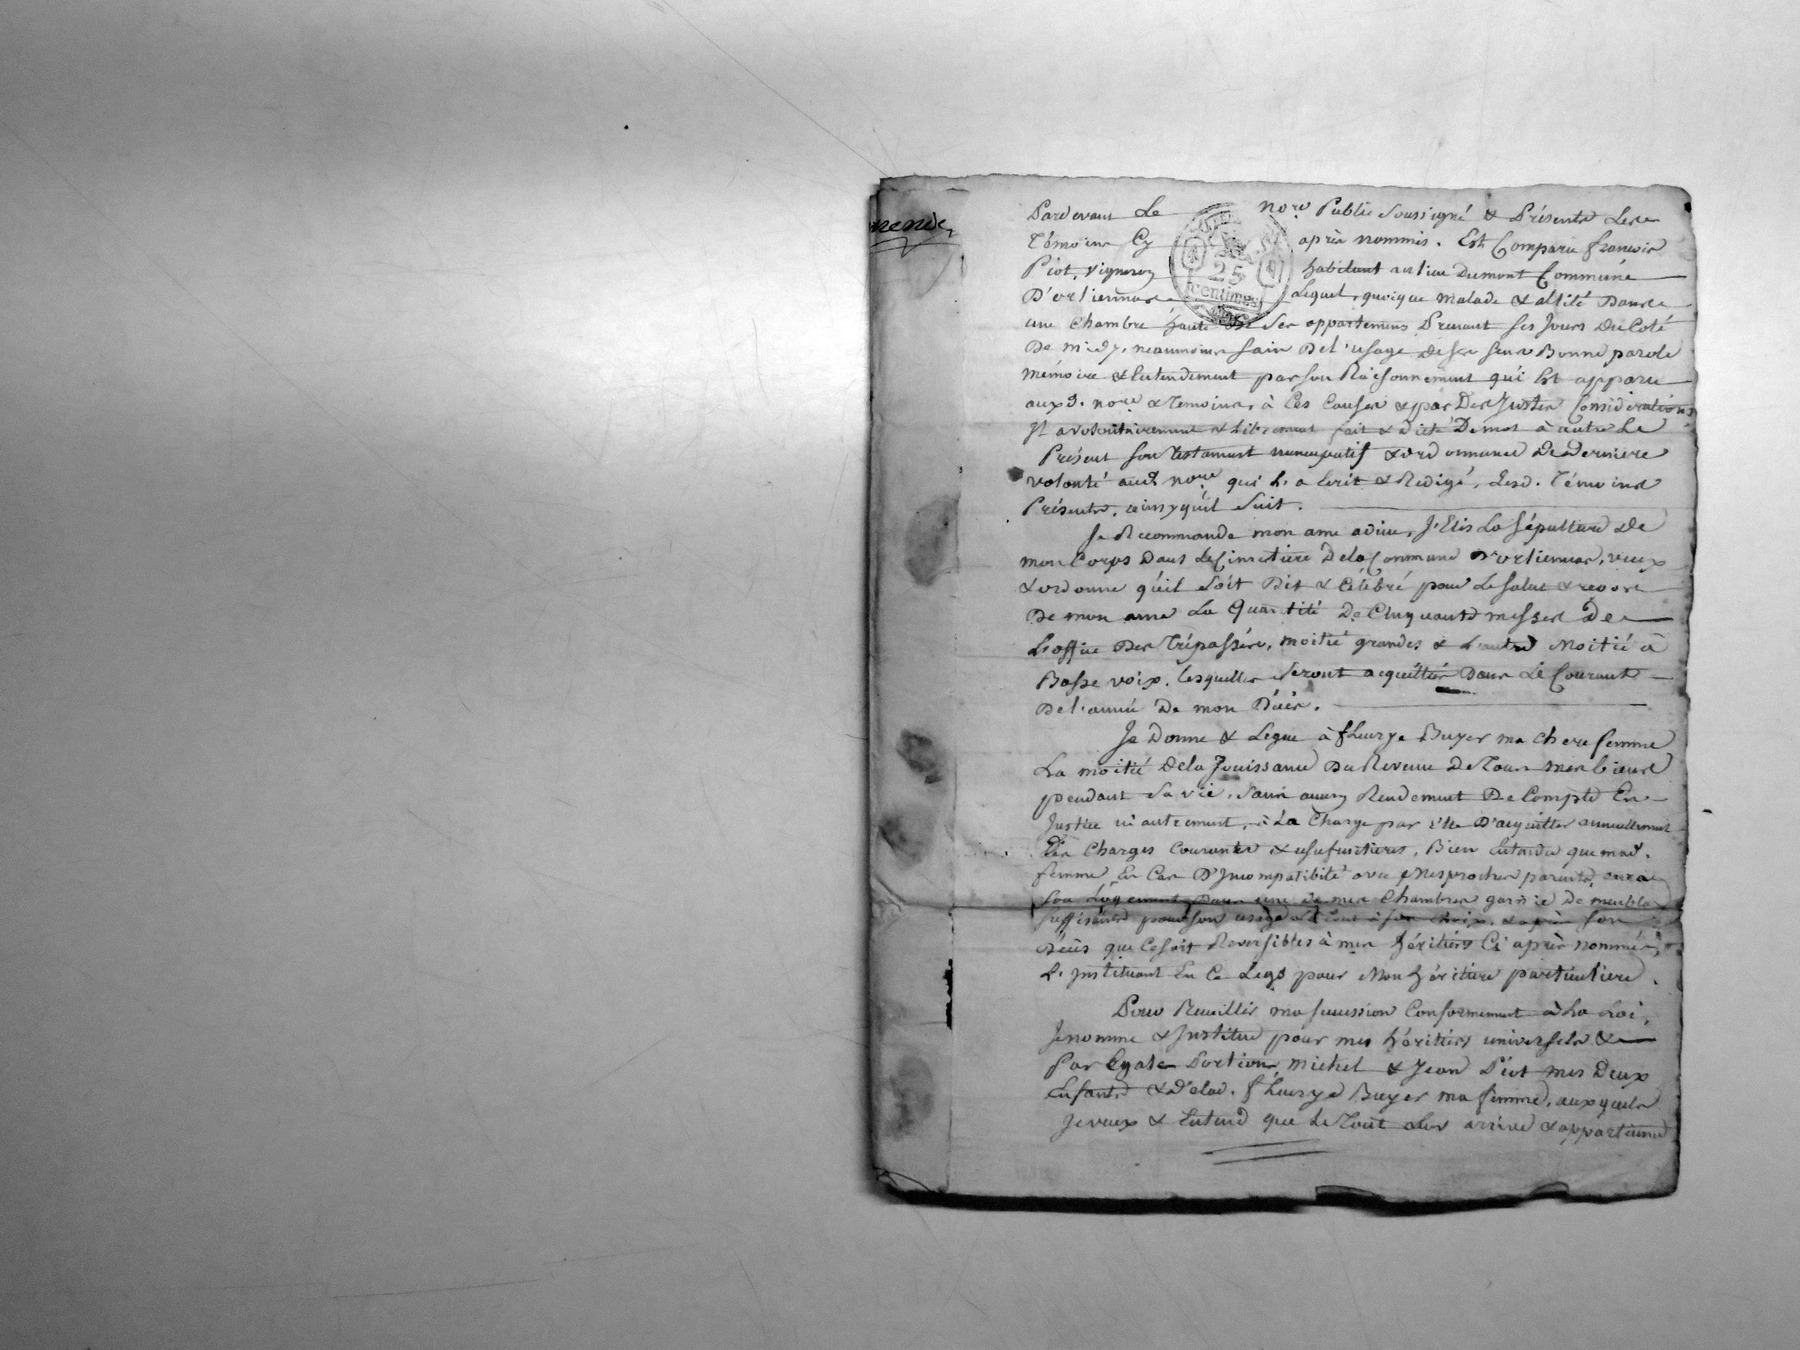 Pardevant Le no.re Public Soussigné & Présents Les
Témoins Cy après nommés. Est Comparu francois
Piot, vigneron habitant au lieu Dumont Commune
D'orliennas Lequel, quoique malade & allité Dans
une chambre haute de ses appartemens Prenant ses Jours Du Coté
De midy, neanmoins sain De l'usage de ses sens Bonne parole
mémoire & Entendement par son Raisonnement qui Est apparu
auxd. no.re & temoins, à Ces Causes & par Des Justes Considérations
Il a volontairement & Librement fait & dicté De mot à autre Le
Présent son testament nuncupatif & ordonnance De Derniere
volonté aud. no.re qui L'a Ecrit & Redigé, Lesd. Témoins
Présents, ainsy qu'il Suit.
Je Recommande mon ame a dieu, J'Elis La Sépulture de
mon Corps Dans Le Cimetiere De la Commune D'orliennas, veux
& ordonne qu'il soit Dit & Célébré pour Le salut & repos
De mon ame La Quantité De Cinquante messes De
L'office Des Trépassés, moitié grandes & L'autre Moitié à
Basse voix, lesquelles Seront acquittées Dans Le Courant
De l'année De mon Décès.
Je Donne & Legue à fleurye Buyer ma chere femme
La moitié De la Jouissance Du Revenu De Tous mes biens
pendant Sa vie, Sans aucun Rendement De Compte En
Justice ni autrement, à La Charge par Elle D'acquitter annuellement
Les Charges Courantes & usufruitieres, Bien Entendu que mad.
femme, En Cas D'Incompatibilité avec Mes proches parents, aura
Son Logement Dans une de mes Chambres garnie De meubles
suffisants pour son usage Le tout à son choix, & après son
Décès que Ce soit Reversibles à mes héritiers Ci après nommés,
L'Instituant En Ce Legs pour Mon héritiere particuliere.
Pour Recuillir ma succession Conformement à La Loi,
Je nomme & Institue pour mes héritiers universels &
Par Egales Portions, Michel & Jean Piot mes Deux
Enfants & De lad. fleurye Buyer ma femme, auxquels
Je veux & Entend que Le Tout alors arrive & appartienne
25
Centimes